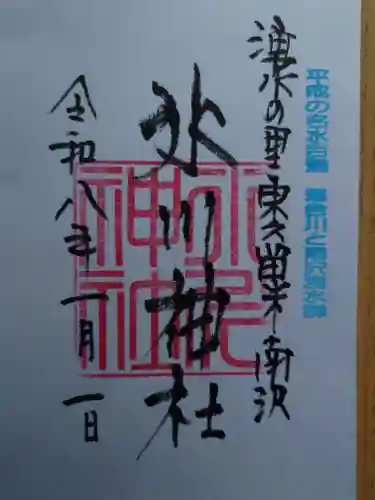 平成の名水百選 落合川と南沢湧水群
湧水の里東久留米南沢
氷川神社
令和八年一月一日
氷川神社